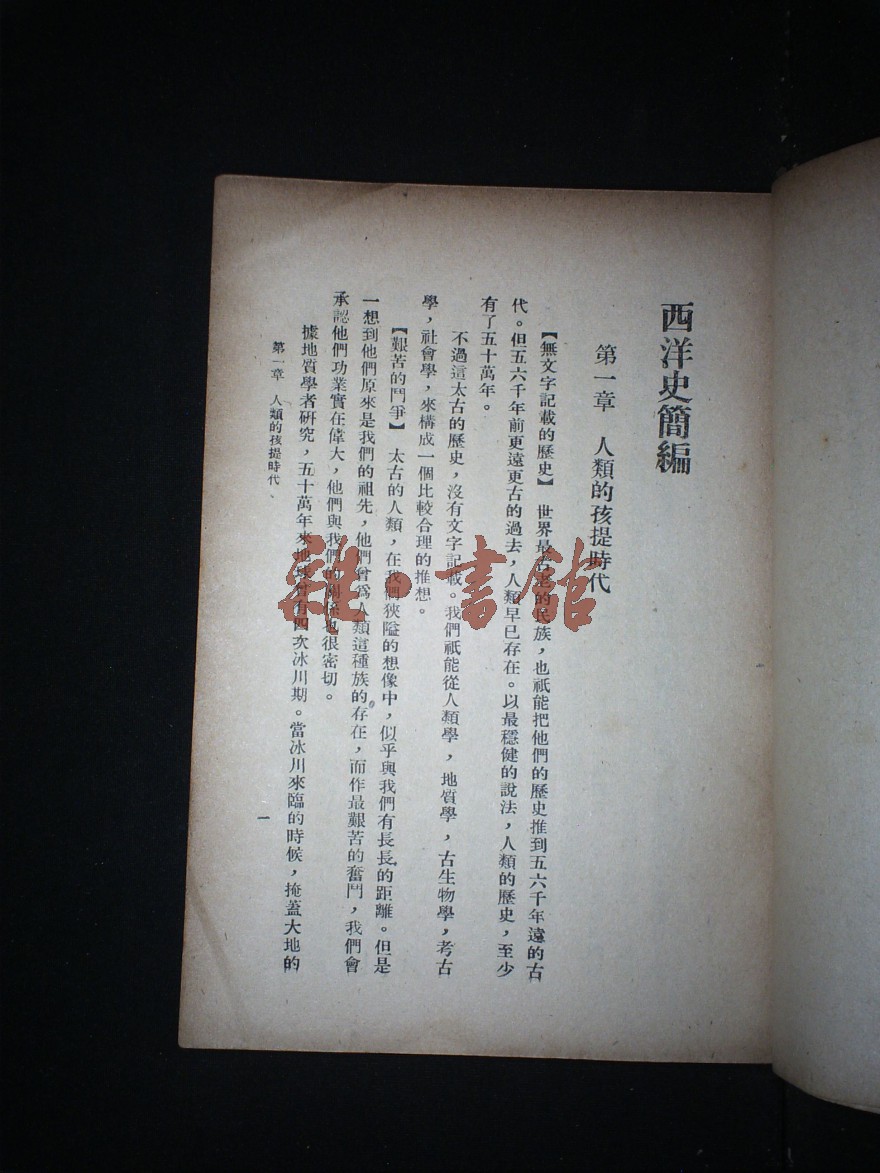 西洋史簡編
第一章 人類的孩提時代
【無文字記載的歷史】 世界最古老的民族，也祇能把他們的歷史推到五六千年遠的古
代。但五六千年前更遠更古的過去，人類早已存在。以最穩健的說法，人類的歷史，至少
有了五十萬年。
不過這太古的歷史，沒有文字記載。我們祇能從人類學，地質學，古生物學，考古
學，社會學，來構成一個比較合理的推想。
【艱苦的鬥爭】 太古的人類，在我們狹隘的想像中，似乎與我們有長長的距離。但是
一想到他們原來是我們的祖先，他們曾爲人類這種族的存在，而作最艱苦的奮鬥，我們會
承認他們功業實在偉大，他們與我們的關係也很密切。
據地質學者研究，五十萬年來地球曾有四次冰川期。當冰川來臨的時候，掩蓋大地的
第一章 人類的孩提時代
一
雜·書館